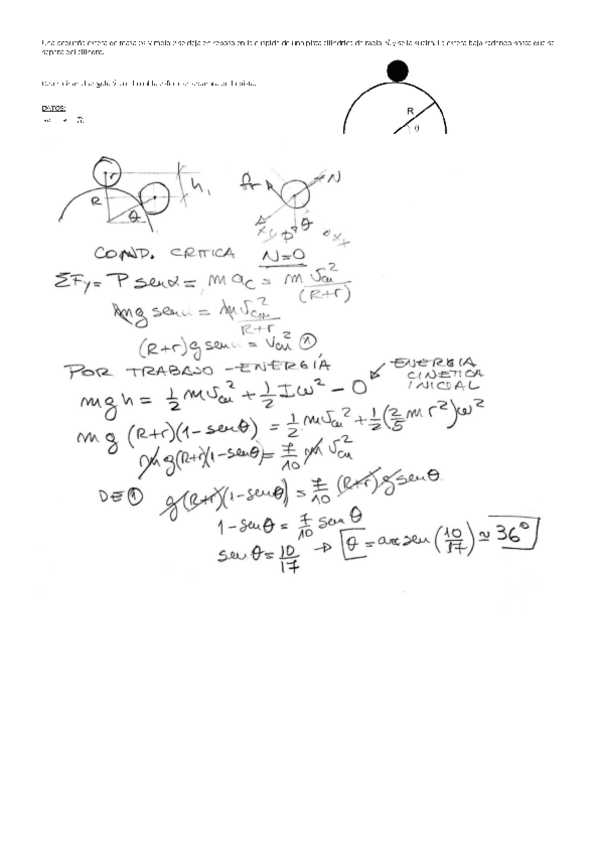 Una pequeña esfera de masa M y radio r se deja en reposo en la cúspide de una pista cilíndrica de radio R y se la suelta. La esfera baja rodando hasta que se
separa del cilindro.
DATOS:
R
θ
r
R
θ
h
fr
N
P
θ
COND. CRITICA N=0
ΣFy = P senα = m ac = m Vcm² / (R+r)
mg senα = m Vcm² / R+r
(R+r) g senα = Vcm² ①
POR TRABAJO - ENERGÍA
ENERGIA
CINETICA
INICIAL
mgh = 1/2 m Vcm² + 1/2 I ω² - 0
mg (R+r)(1-senθ) = 1/2 m Vcm² + 1/2 (2/5 m r²) ω²
m g(R+r)(1-senθ) = 7/10 m Vcm²
DE ① g(R+r)(1-senθ) = 7/10 (R+r) g senθ
1-senθ = 7/10 senθ
senθ = 10/17 → θ = arcsen (10/17) ≃ 36°